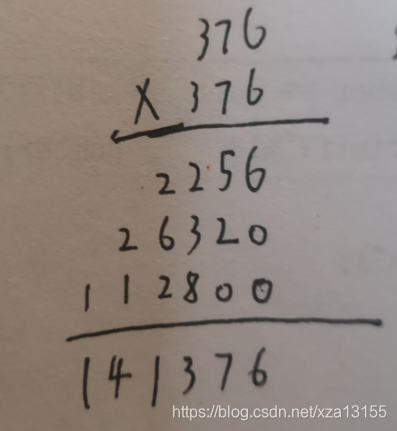 376
X 376
2256
26320
112800
141376
https://blog.csdn.net/xza13155